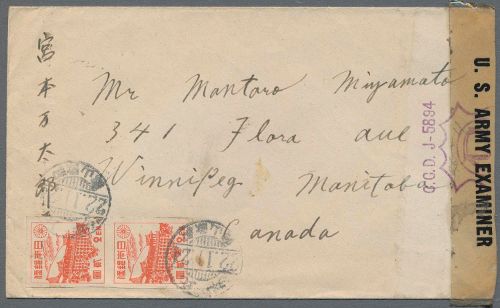 宮本万太郎
Mr Mantaro Miyamato
341 Flora ave
Winnipeg Manitoba
Canada
C.C.D. J-5894
U. S. ARMY EXAMINER